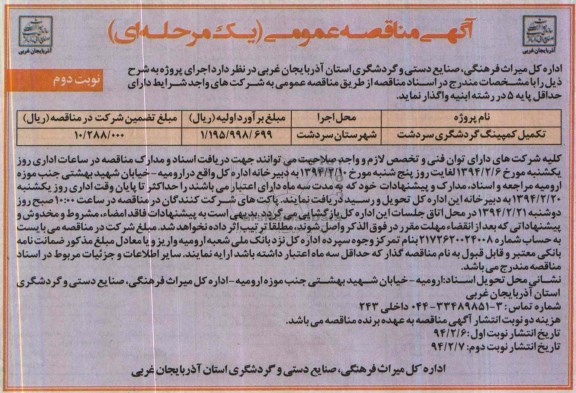 آگهی مناقصه عمومی (یک مرحله‌ای)
نوبت دوم
اداره کل میراث فرهنگی، صنایع دستی و گردشگری استان آذربایجان غربی در نظر دارد اجرای پروژه به شرح
ذیل را با مشخصات مندرج در اسناد مناقصه از طریق مناقصه عمومی به شرکت های واجد شرایط دارای
حداقل پایه ۵ در رشته ابنیه واگذار نماید.
نام پروژه محل اجرا مبلغ برآورد اولیه (ریال) مبلغ تضمین شرکت در مناقصه (ریال)
تکمیل کمپینگ گردشگری سردشت شهرستان سردشت ۱/۱۹۵/۹۹۸/۶۹۹ ۱۰/۲۸۸/۰۰۰
کلیه شرکت های دارای توان فنی و تخصص لازم و واجد صلاحیت می توانند جهت دریافت اسناد و مدارک مناقصه در ساعات اداری روز
یکشنبه مورخ ۱۳۹۴/۲/۶ لغایت روز پنج شنبه مورخ ۱۳۹۴/۲/۱۰ به دبیرخانه اداره کل واقع در ارومیه - خیابان شهید بهشتی جنب موزه
ارومیه مراجعه و اسناد، مدارک و پیشنهادات خود که به مدت سه ماه دارای اعتبار می باشند را حداکثر تا پایان وقت اداری روز یکشنبه
۱۳۹۴/۲/۲۰ به دبیرخانه این اداره کل تحویل و رسید دریافت نمایند. پاکت های شرکت کنندگان در مناقصه در ساعت ۱۰:۰۰ صبح روز
دوشنبه ۱۳۹۴/۲/۲۱ در محل اتاق جلسات این اداره کل بازگشایی می گردد. بدیهی است به پیشنهادات فاقد امضاء، مشروط و مخدوش و
پیشنهاداتی که بعد از انقضاء مهلت مقرر در فوق الذکر واصل شوند، مطلقا ترتیب اثر داده نخواهد شد. مبلغ شرکت در مناقصه می بایست
به حساب شماره ۲۱۷۳۶۲۰۰۲۴۰۰۸ بنام تمرکز وجوه سپرده اداره کل نزد بانک ملی شعبه ارومیه واریز و یا معادل مبلغ مذکور ضمانت نامه
بانکی معتبر و قابل قبول به نام مناقصه گذار که حداقل سه ماه اعتبار داشته باشد ارایه نمایند. سایر اطلاعات و جزئیات مربوط در اسناد
مناقصه مندرج می باشد.
نشانی محل تحویل اسناد: ارومیه - خیابان شهید بهشتی جنب موزه ارومیه - اداره کل میراث فرهنگی، صنایع دستی و گردشگری
استان آذربایجان غربی
شماره تماس: ۳-۳۳۴۸۹۸۵۱-۰۴۴ داخلی ۲۴۳
هزینه دو نوبت انتشار آگهی مناقصه به عهده برنده مناقصه می باشد.
تاریخ انتشار نوبت اول: ۹۴/۲/۶
تاریخ انتشار نوبت دوم: ۹۴/۲/۷
اداره کل میراث فرهنگی، صنایع دستی و گردشگری استان آذربایجان غربی